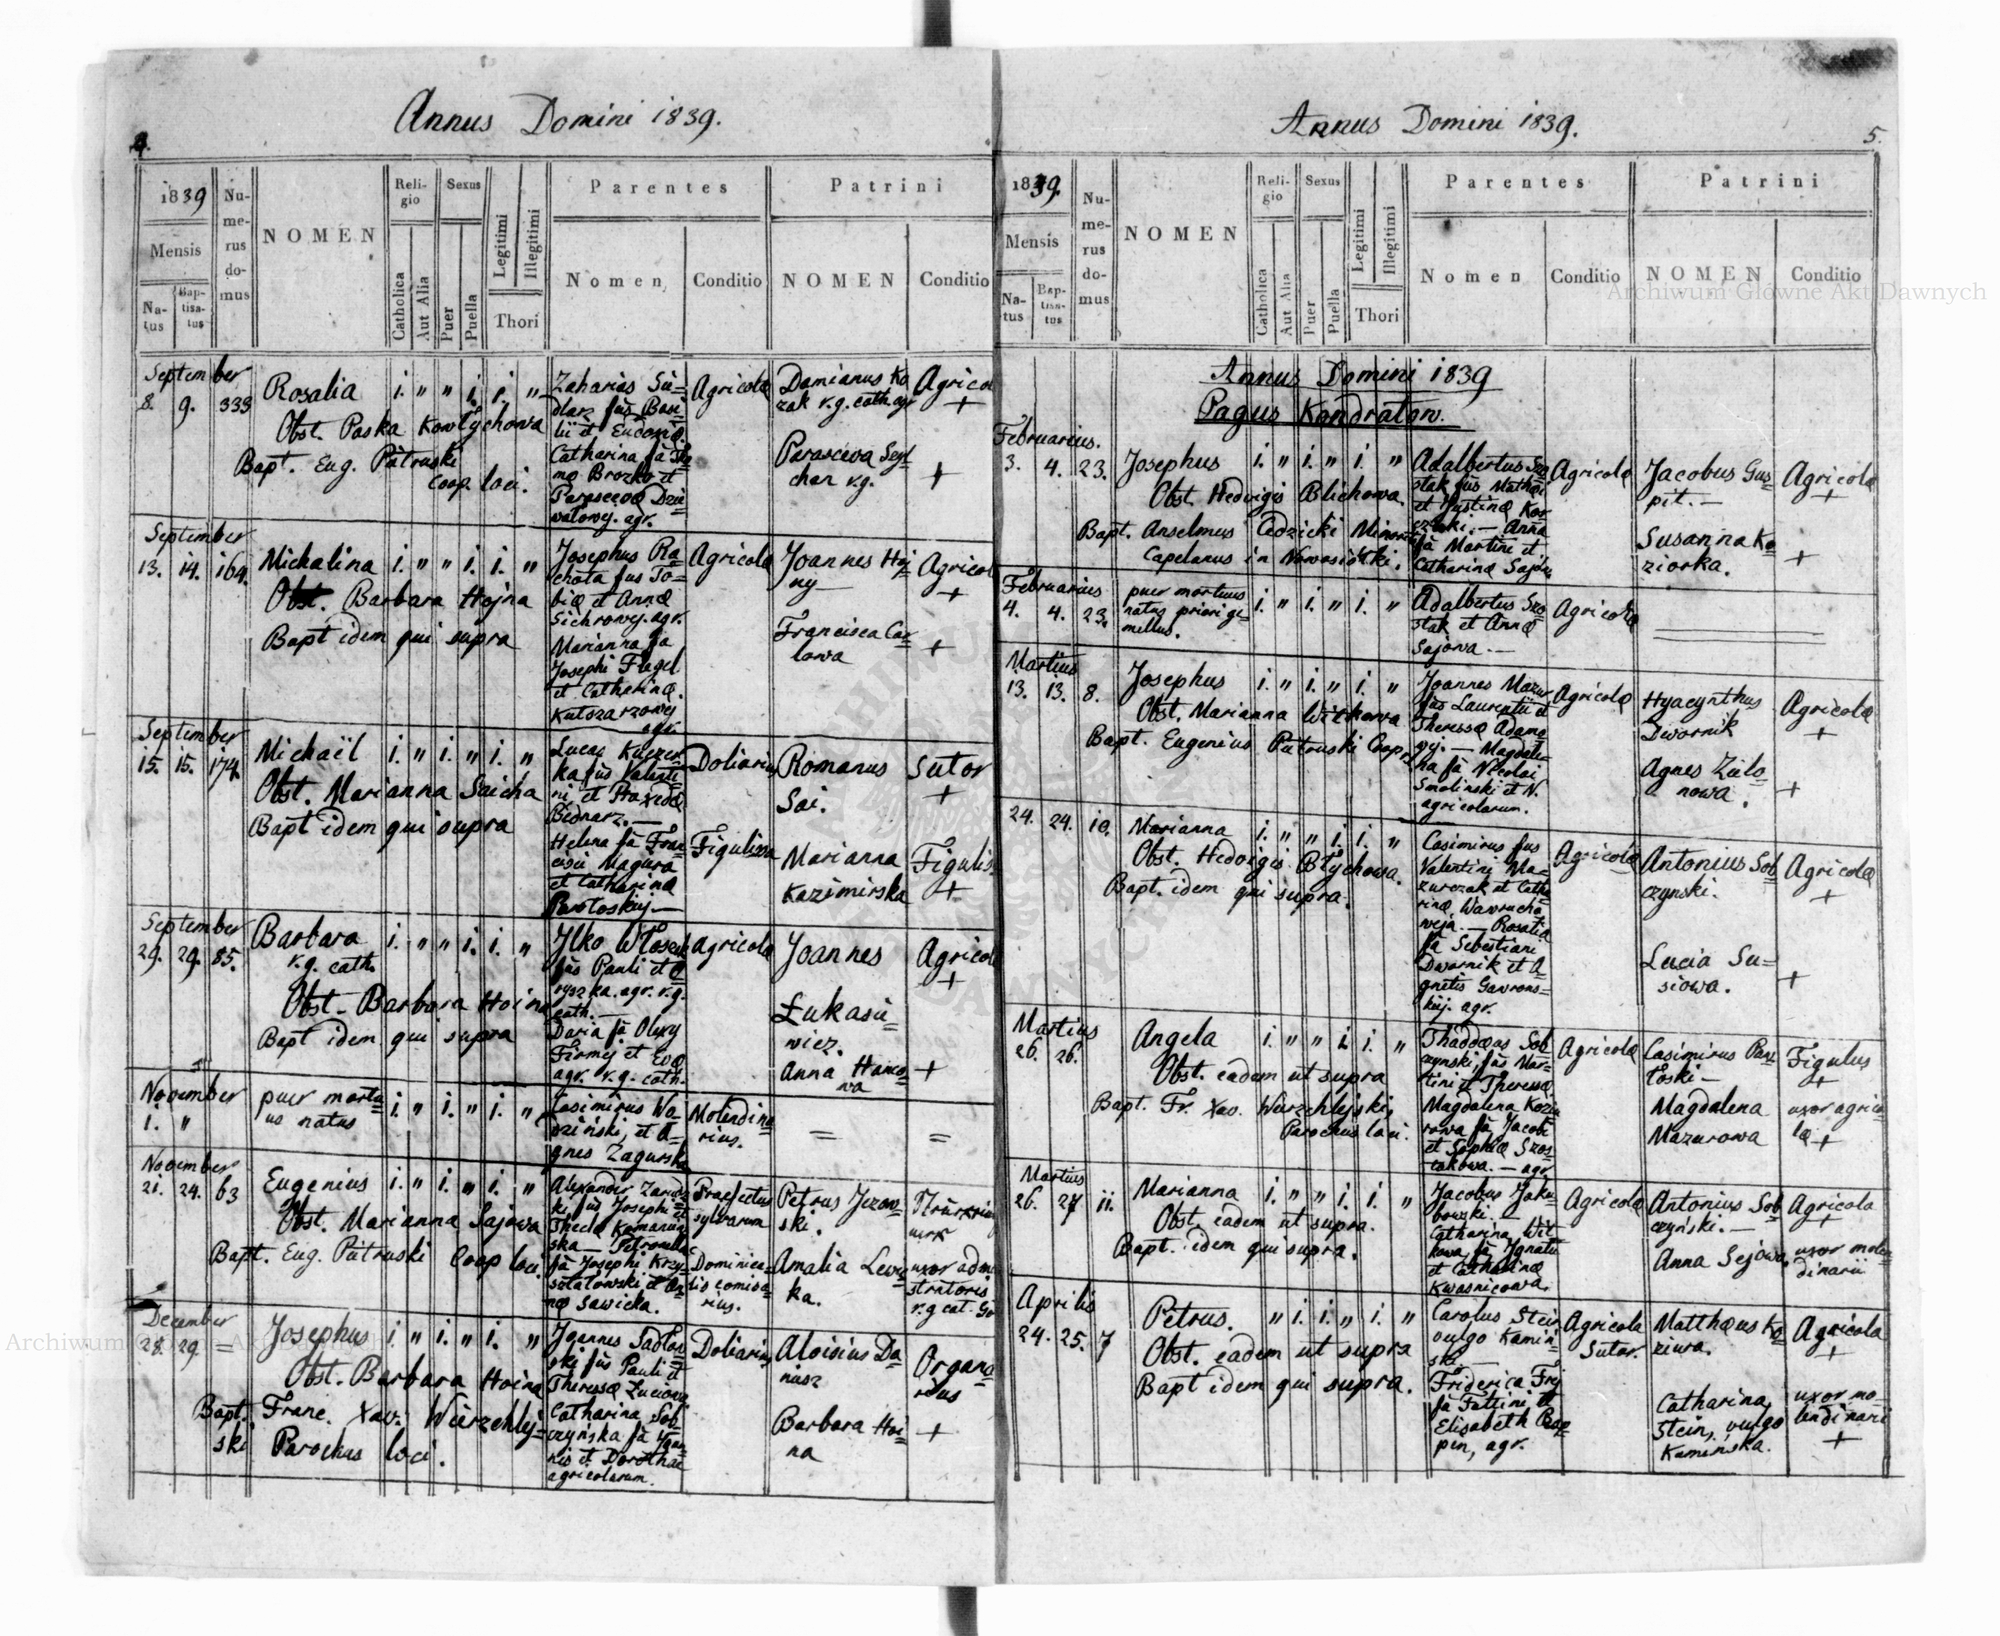 Annus Domini 1839.
4.
1839
Mensis
Na-
tus
Bap-
tisa-
tus
Nu-
me-
rus
do-
mus
NOMEN
Reli-
gio
Catholica
Aut Alia
Sexus
Puer
Puella
Legitimi
Illegitimi
Thori
Parentes
Nomen
Conditio
Patrini
NOMEN
Conditio
September
8. 9. 333
Rosalia
i. " " i. i. "
Obst. Paska Kowlychowa
Bapt. Eug. Putruski
Coop. loci.
Agricola
Damianus Ko
zak r.g. cath. agr
Agricol
+
Parasceva Sey=
char r.g.
+
September
13. 14. 164.
Michalina i. " " i. i. "
Obst. Barbara Hojna
Bapt idem qui supra
Josephus Ra=
chota fus To=
biæ et Annæ
Sichrowy. agr.
Marianna fa
Josephi Flegel
et Catharinæ.
Kutszarzowej
agr.
Agricola
Joannes Hoj=
ny
Agricol
+
Francisca Car=
lowa
+
September
15. 15. 174.
Michaël i. " i. " i. "
Obst. Marianna Saicha
Bapt idem qui supra
ni et Praxedæ
Bednarz. —
Helena fa Fran=
cisci Magura
et Catharinæ
Pawłoskiej —
Doliarius
Figulissa
Romanus
Sai.
Sutor
+
Marianna
Kazimirska
Figulis
+
September
29. 29. 85.
Barbara i. " " i. i. "
r.g. cath.
Obst. Barbara Hoina
Bapt idem qui supra
fus Pauli et O
ryszka. agr. r.g.
cath. —
Daria fa Olexy
Firmej et Evæ
agr. r.g. cath.
Agricola
Joannes
Łukasie=
wicz.
Anna Hanco=
wa
Agricol
+
+
November
i. "
puer mortu=
us natus
i. " i. " i. "
Casimirus Wo=
ziński, et A=
gnes Zagurska
Molendina
rius.
=
=
November
21. 24. 63
Eugenius i. " i. " i. "
Obst. Marianna Sajowa
Bapt. Eug. Putruski Coop loci.
ki fus Josephi et
Theclæ Komarnic=
ska — Petronella
fa Josephi Krzy=
sztatowski et An=
næ Sawicka.
Praefectus
sylvarum
Dominica=
lis comisa=
rius.
Petrus Jezow=
ski.
Amalia Lewic=
ka.
uxor admi
stratoris
r.g cat.
December
28. 29. =
Josephus i. " i. " i. "
Obst. Barbara Hoina
Bapt. Franc. Xav. Wierzchlej=
ski Parochus loci.
Joannes Sadłow=
ski fus Pauli et
Theresæ
Catharina Sob=
czyńska fa Joan=
nis et Dorotheæ
agricolarum.
Doliarius
Aloisius Da=
nusz
Organa=
rius
Barbara Hoi=
na
+
Annus Domini 1839.
5.
1839.
Mensis
Na-
tus
Bap-
tisa-
tus
Nu-
me-
rus
do-
mus
NOMEN
Reli-
gio
Catholica
Aut Alia
Sexus
Puer
Puella
Legitimi
Illegitimi
Thori
Parentes
Nomen
Conditio
Patrini
NOMEN
Conditio
Annus Domini 1839
Pagus Kondratow.
Februarius.
3. 4. 23.
Josephus i. " i. " i. "
Obst Hedvigis Blichowa
Bapt. Anselmus Cedzicki Minorita
Capelanus in Nowosiółki.
Adalbertus Szo
stak fus Mathæi
et Justinæ Kor
czinski. — Anna
fa Martini et
Catharinæ Sajow.
Agricola
Jacobus Gus=
pit. —
Agricola
+
Susanna Ko=
ziorka.
+
Februarius
4. 4. 23.
puer mortuus
natus priori ge=
mellus.
i. " i. " i. "
Adalbertus Szo
stak et Anna
Sajowa. —
Agricola
Martius
13. 13. 8.
Josephus i. " i. " i. "
Obst. Marianna Witkowa
Bapt. Eugenius Putruski Coopr.
Joannes Mazur
fus Laurentii et
Theresæ Adamo
wej. — Magdale=
na fa Nicolai
Smolinski et N.
agricolarum.
Agricola
Hyacynthus
Dwornik
Agricola
+
Agnes Zielo=
nowa.
+
24. 24. 10.
Marianna i. " " i. i. "
Obst. Hedvigis Błychowa.
Bapt. idem qui supra.
Casimirus fus
Valentini Ma=
zurczak et Catha
rinæ Wawrucho
weja. — Rosalia
fa Sebestiani
Dwornik et A=
gnetis Gawrons=
kiej. agr.
Agricola
Antonius Sob=
czynski.
Agricola
+
Lucia Su=
siowa.
+
Martius
26. 26.
Angela i. " " i. i. "
Obst. eadem ut supra
Bapt. Fr. Xav. Wierzchlejski,
Parochus loci.
Thaddæus Sob=
czynski, fus Mar=
tini et Theresæ
Magdalena Kozio
rowa fa Jacobi
et Sophiæ Szos=
takowa. — agr
Agricola
Casimirus Paw=
łoski —
Figulus
+
Magdalena
Mazurowa
uxor agrico=
læ +
Martius
26. 27 ii.
Marianna i. " " i. i. "
Obst. eadem ut supra.
Bapt. idem qui supra.
Jacobus Jaku=
bowski. —
Catharina Wit=
kowa, fa Ignatii
et Catharinæ
Kwasnicowa.
Agricola
Antonius Sob=
czyński. —
Agricola
+
Anna Sejowa,
uxor molen=
dinarii
Aprilis
24. 25. 7
Petrus. " i. i. " i. "
Obst. eadem ut supra
Bapt idem qui supra.
Carolus Stein
vulgo Kamiń=
ski —
Friderica Frej
fa Fattini, et
Elisabeth Pap=
pen, agr.
Agricola
Sutor.
Matthæus Ko=
ziura.
Agricola
+
Catharina
Stein, vulgo
Kamińska.
uxor mo=
lendinari
+
Archiwum Główne Akt Dawnych
Archiwum Główne Akt Dawnych